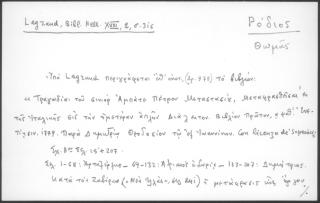 Legrand, Bibl. Hell. XVIII, 2, σ. 316
Ρόδιος
Θωμᾶς
Ὑπὸ Legrand περιγράφεται ὑπ' ἀριθ. (ἀρ. 978) τὸ βιβλίον:
« Τραγωδίαι τοῦ σινιὸρ Ἀμπάτε Πέτρου Μεταστασίου, Μεταφρασθεῖσαι ἐκ
τῆς Ἰταλικῆς εἰς τὴν ἡμετέραν ἁπλῆν Διάλεκτον. Βιβλίον Πρῶτον,
1779. Παρὰ Δημητρίῳ Θεοδοσίου τῷ ἐξ Ἰωαννίνων. Con licenza de' Superiori.
Σχ. 8ον Σελ. 207.
Σελ. 1-68: Ἀρταξέρξης - 69-132: Ἀδριανὸς - 133-207: Δημήτριος.
Κατὰ τὸν Ζαβίραν («Νέα Ἑλλάς», σελ. ) ἡ μετάφρασις